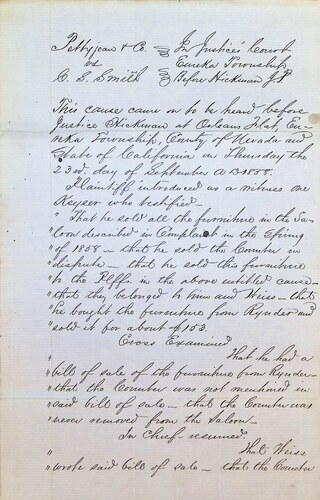 Pettyjean & Co. } In Justice's Court
vs } Eureka Township
C. S. Smith } Before Hickman J.P
This cause came on to be heard before
Justice Hickman at Orleans Flat, Eu-
reka Township, County of Nevada and
State of California on Thursday the
23rd. day of September A D 1858.
Plaintiff introduced as a witness one
Keyser who testified -
" That he sold all the furniture in the Sa-
" loon described in Complaint in the Spring
" of 1858 - that he sold the Counter in
" dispute - that he sold this furniture
" to the Plffs in the above entitled cause -
" that they belonged to him and Weiss - that
" he bought the furniture from Rynder and
" sold it for about $153.
Cross Examined
" That he had a
" bill of sale of the furniture from Rynder -
" that the Counter was not mentioned in
" said bill of sale - that the Counter was
" never removed from the Saloon -
In Chief resumed.
" That Weiss
" wrote said bill of sale - that the Counter